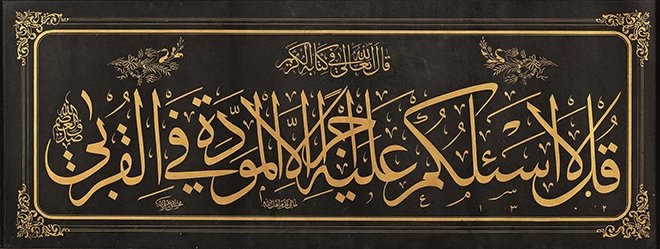 قال الله تعالى في كتابه الكريم
قل لا اسئلكم عليه اجرا الا المودة في القربى